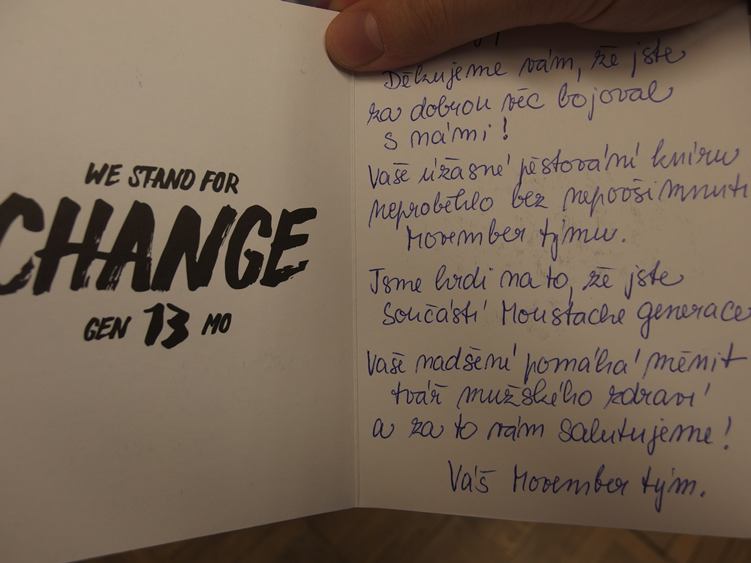 WE STAND FOR
CHANGE
GEN 13 MO
Děkujeme vám, že jste
za dobrou věc bojoval
s námi!
Vaše úžasné pěstování kníru
neproběhlo bez nepovšimnutí
Movember týmu.
Jsme hrdi na to, že jste
součástí Moustache generace
Vaše nadšení pomáhá měnit
tvář mužského zdraví
a za to vám salutujeme!
Váš Movember tým.